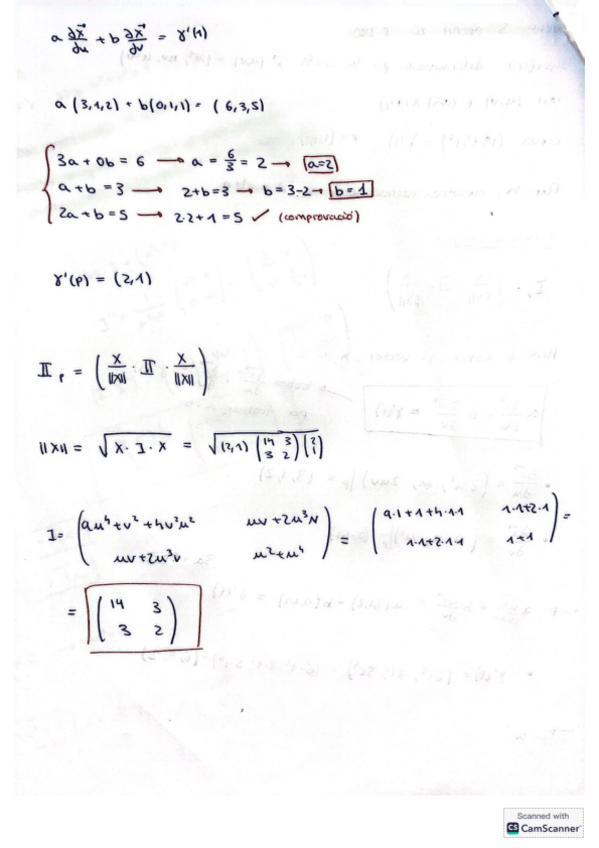 a ∂x⃗/∂u + b ∂x⃗/∂v = γ'(1)
a (3,1,2) + b(0,1,1) = (6,3,5)
3a + 0b = 6 → a = 6/3 = 2 → a=2
a + b = 3 → 2+b=3 → b = 3-2 → b = 1
2a + b = 5 → 2·2 + 1 = 5 ✓ (comprovació)
γ'(p) = (2,1)
II_p = (X/||X|| · II · X/||X||)
||X|| = √(X · I · X) = √((2,1) (14 3 / 3 2) (2 / 1))
I = (9u⁴+v²+4v²u² uv+2u³v / uv+2u³v u²+u⁴) = (9·1+1+4·1·1 1·1+2·1 / 1·1+2·1·1 1+1) =
= (14 3 / 3 2)
Scanned with
CS CamScanner